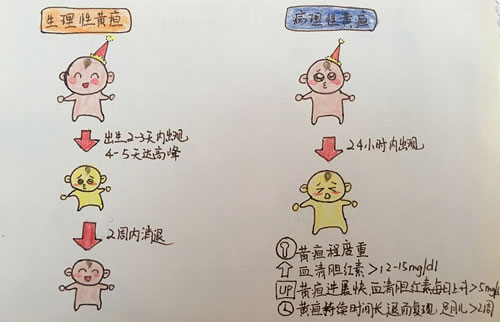 生理性黄疸
病理性黄疸
出生2-3天内出现
4-5天达高峰
2周内消退
24小时内出现
黄疸程度重
血清胆红素>12-15mg/dl
UP 黄疸进展快 血清胆红素每日上升>5mg/d
黄疸持续时间长 退而复现 足月儿>2周